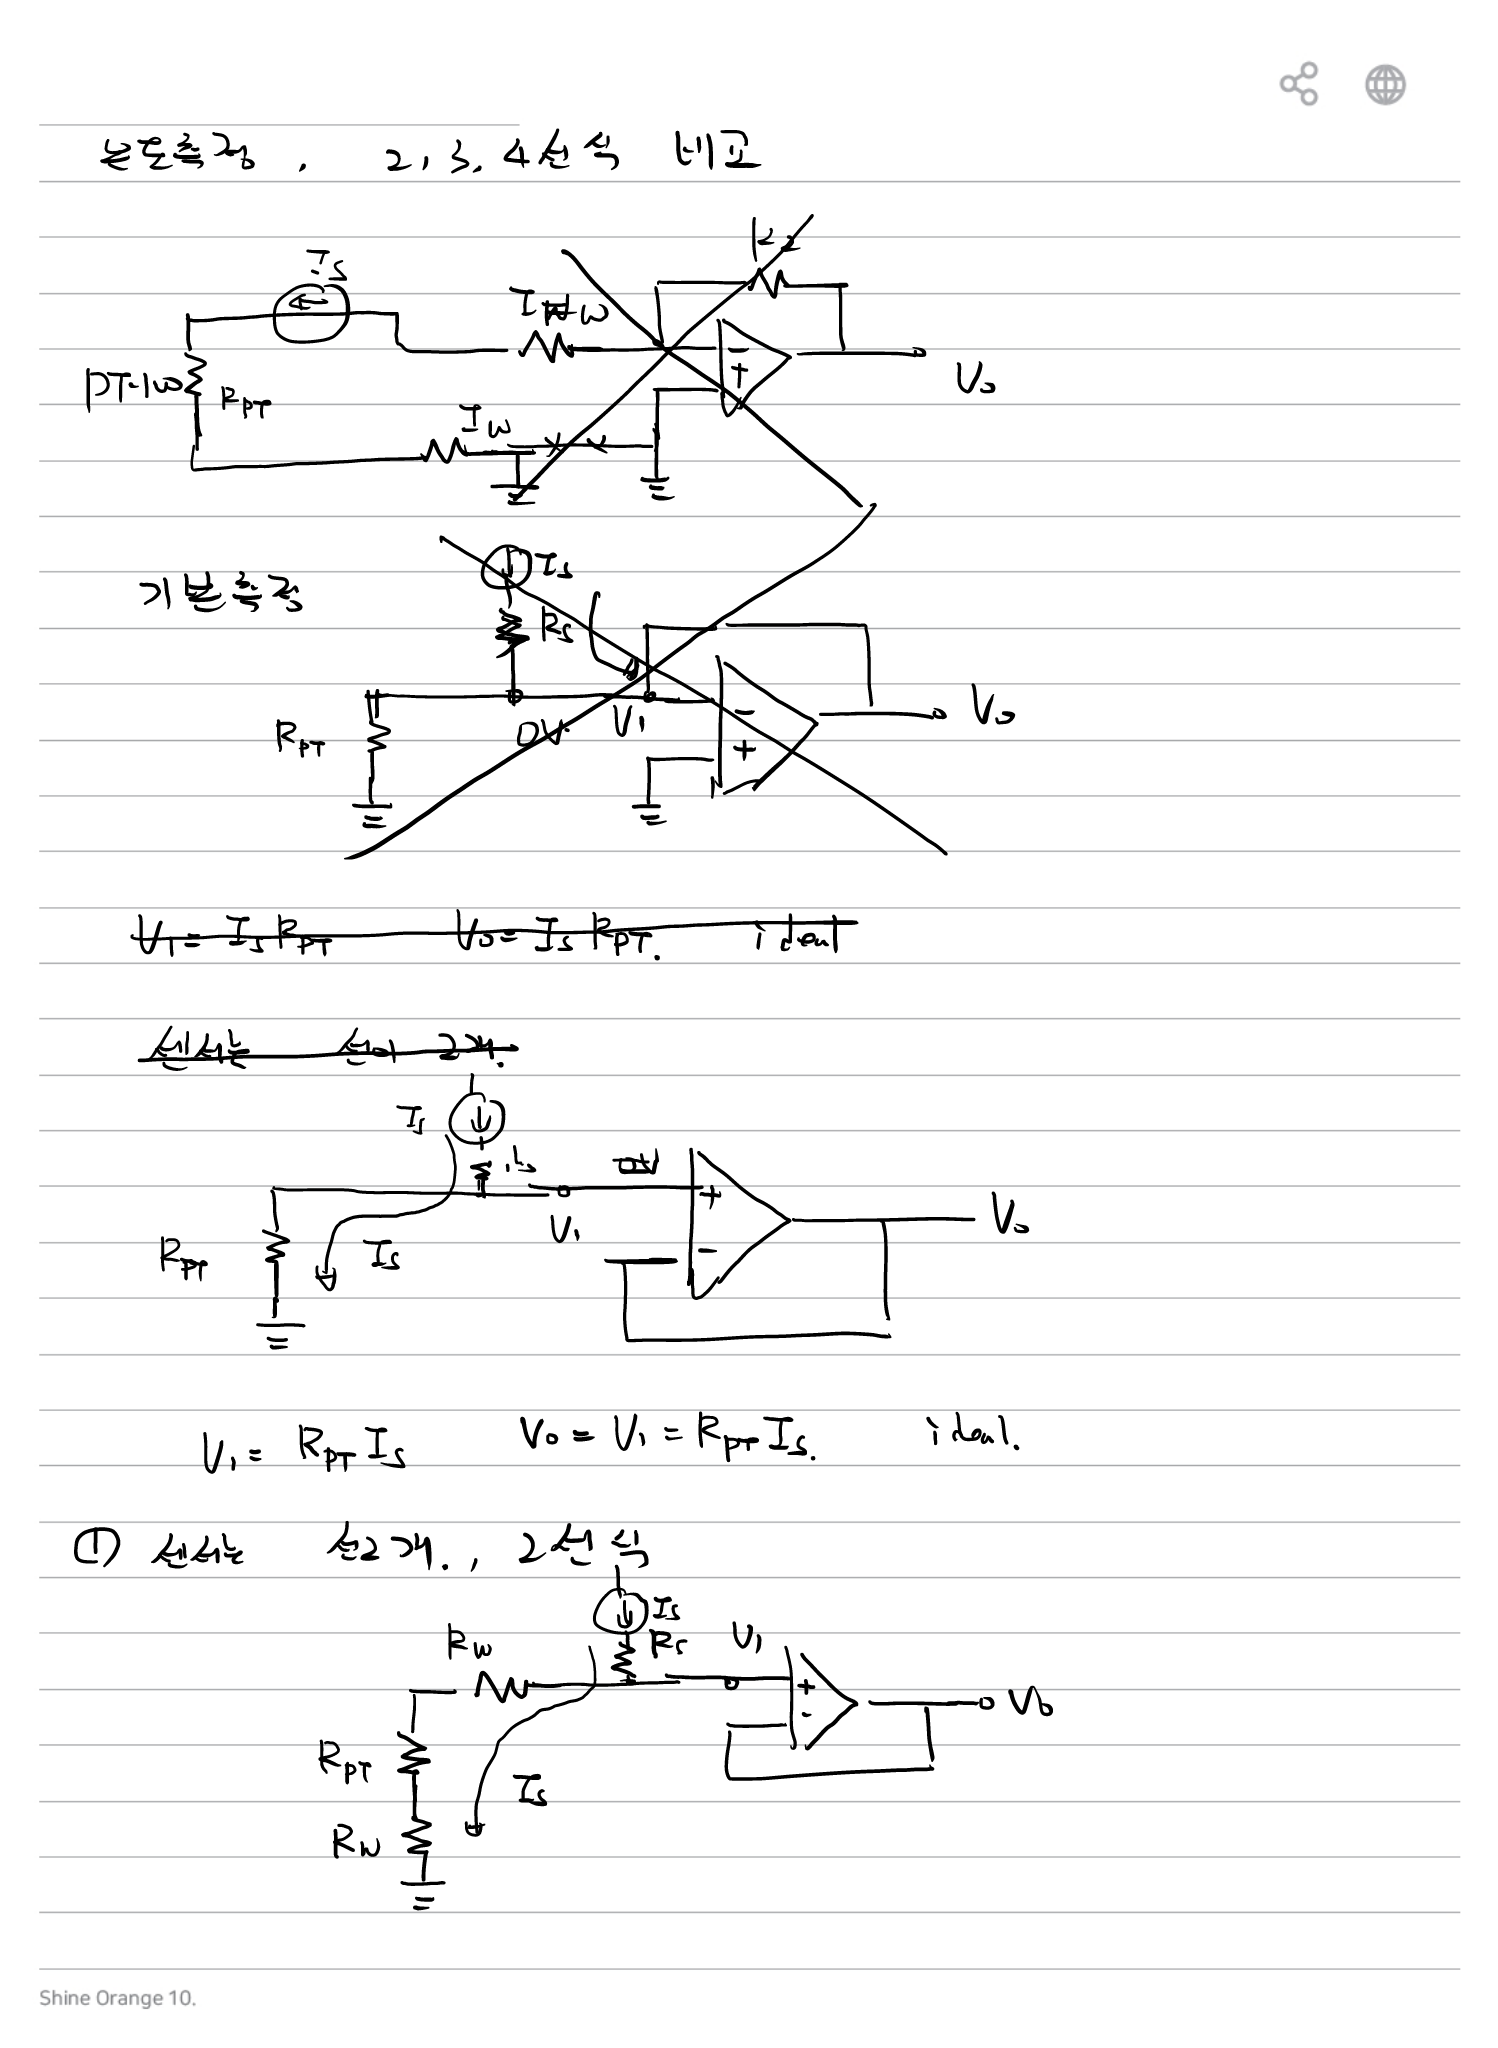 온도측정, 2, 3, 4선식 비교
Is
R2
IW
PT-100
RPT
IW
-
+
Vo
기본측정
Is
Rs
RPT
0V
V1
-
+
Vo
V1 = Is RPT Vo = Is RPT. ideal
센서는 선이 2개.
Is
0V
+
-
V1
Vo
RPT
Is
V1 = RPT Is Vo = V1 = RPT Is. ideal.
① 센서는 선2개., 2선식
Is
RW
Rs
V1
+
-
Vo
RPT
Is
RW
Shine Orange 10.